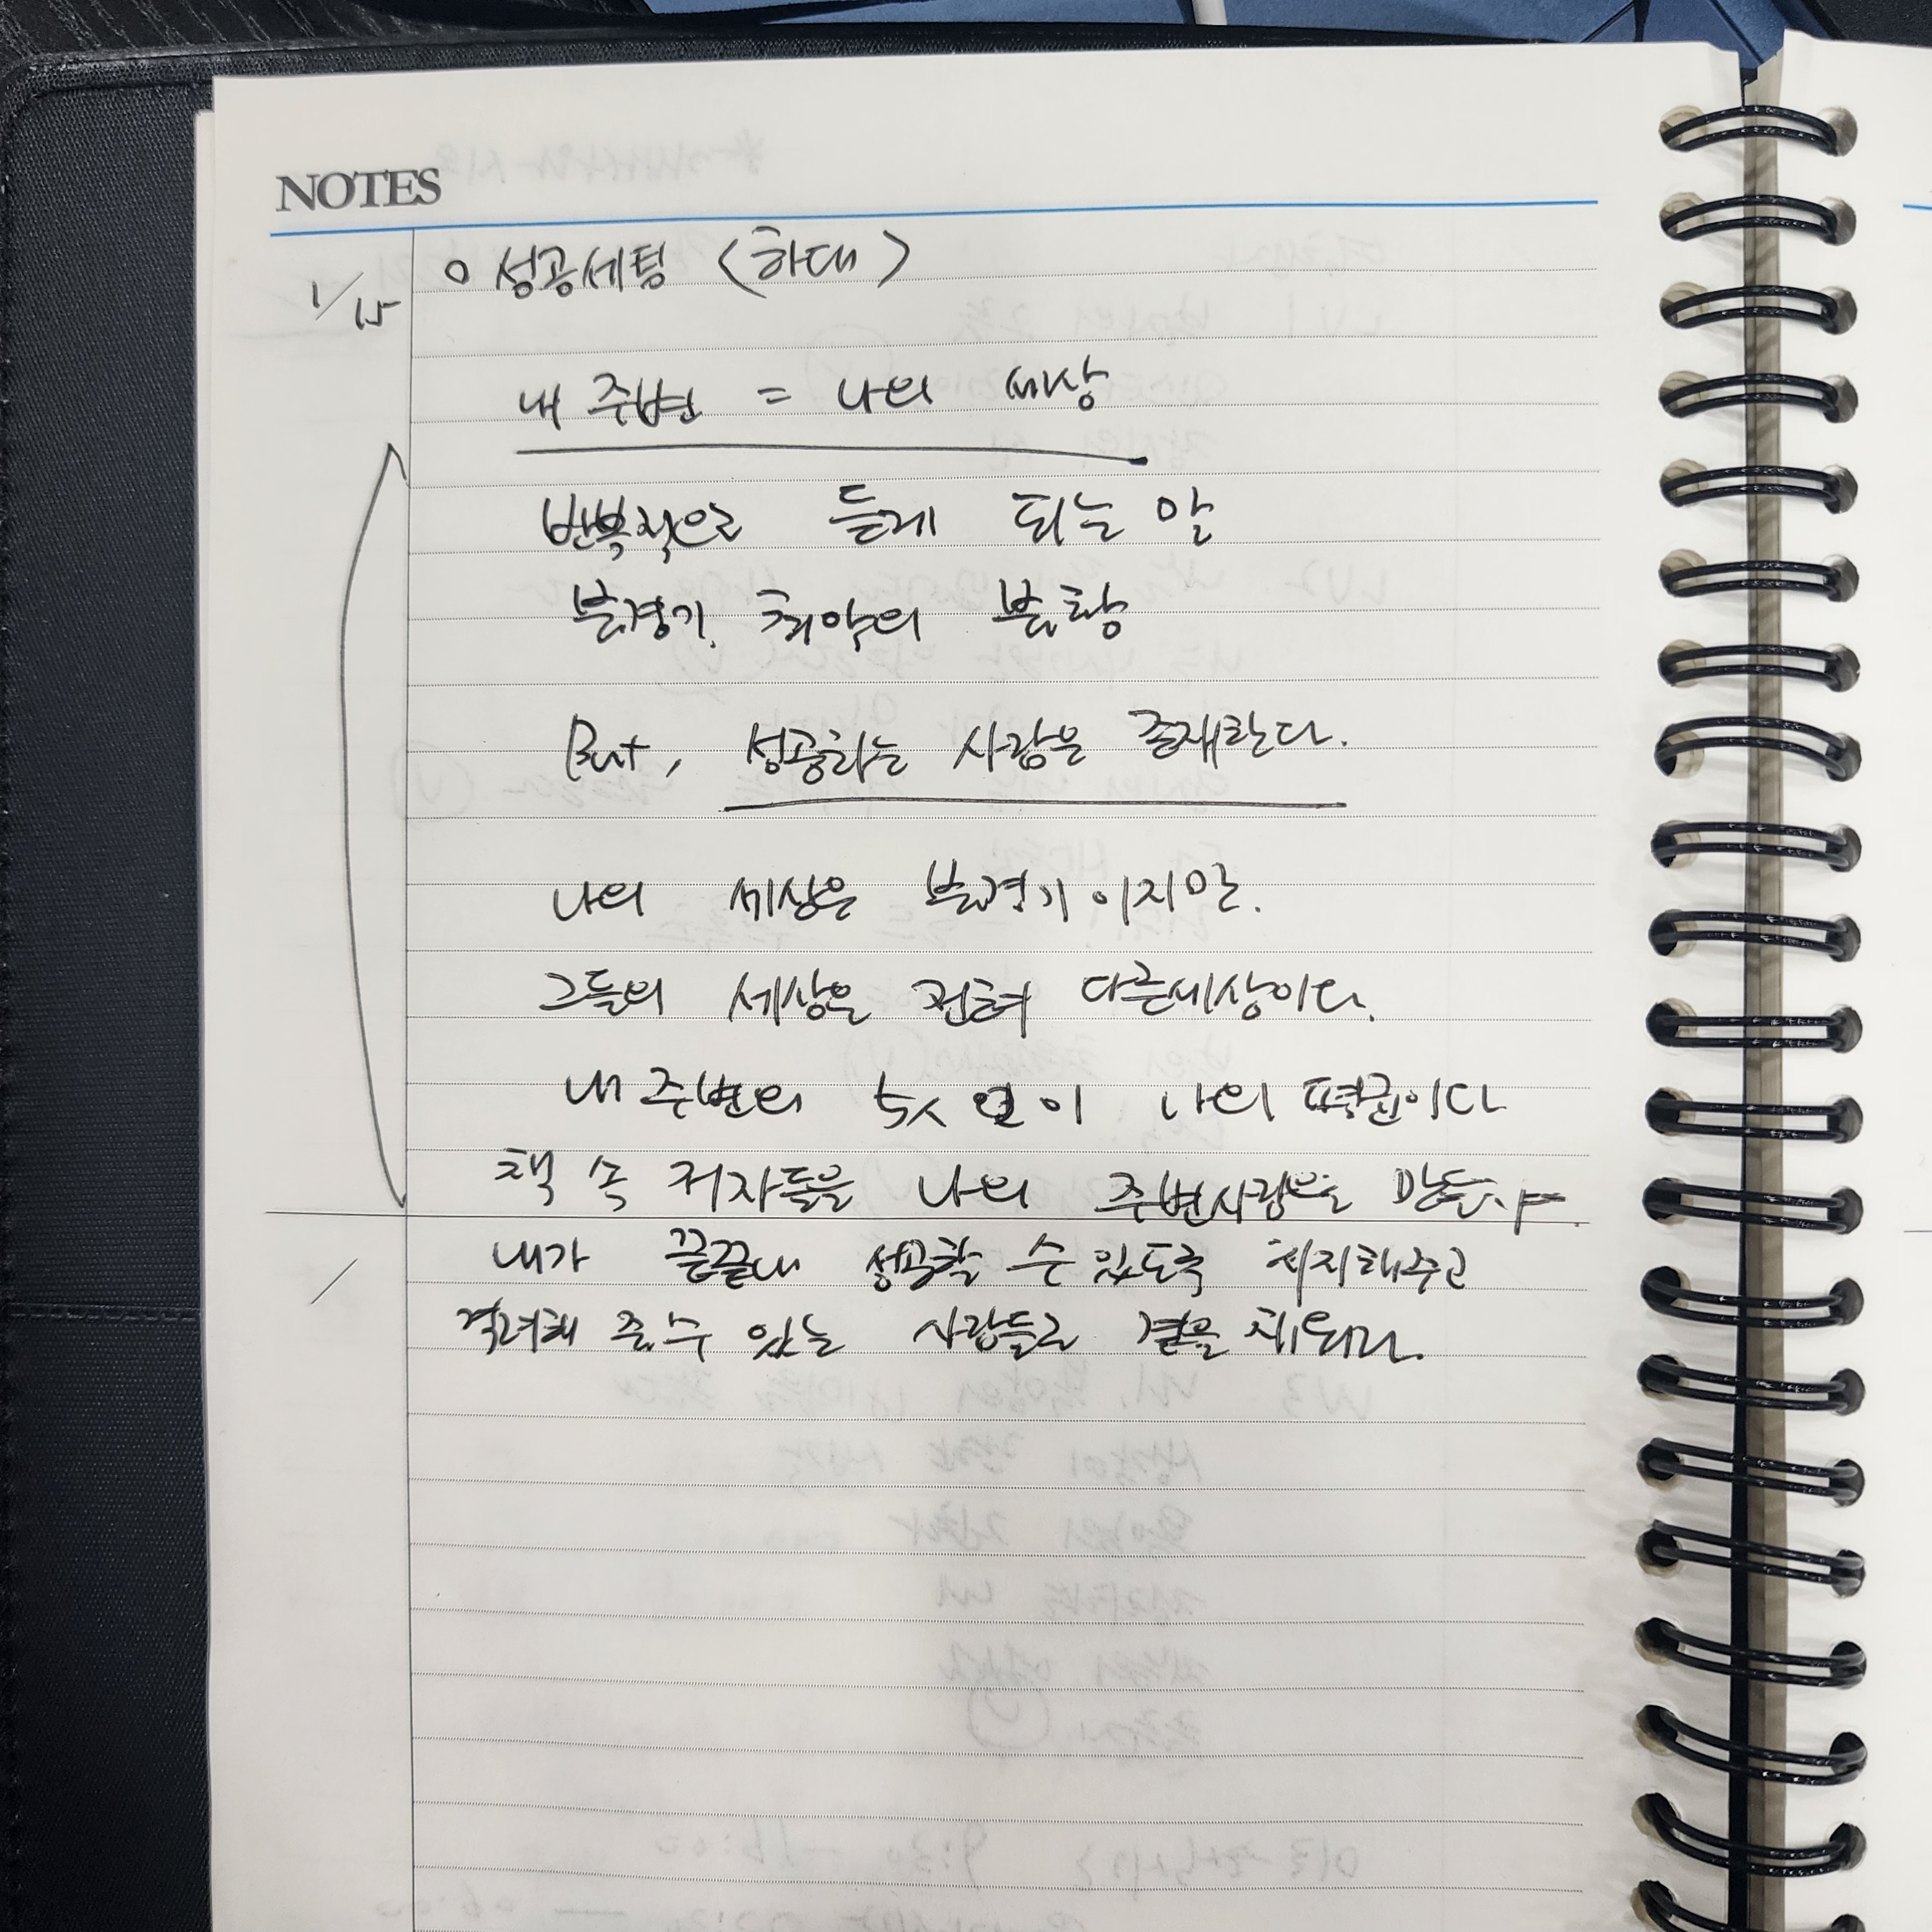 NOTES
1/15
o 성공세팅 <하대>
내 주변 = 나의 세상
반복적으로 듣게 되는 말
불경기, 최악의 불황
But, 성공하는 사람은 존재한다.
나의 세상은 불경기이지만.
그들의 세상은 전혀 다른세상이다.
내 주변의 5人 이 나의 평균이다
책 속 저자들을 나의 주변사람으로
내가 끝끝내 성공할 수 있도록 지지해주고
격려해 줄 수 있는 사람들로 곁을 채워라.